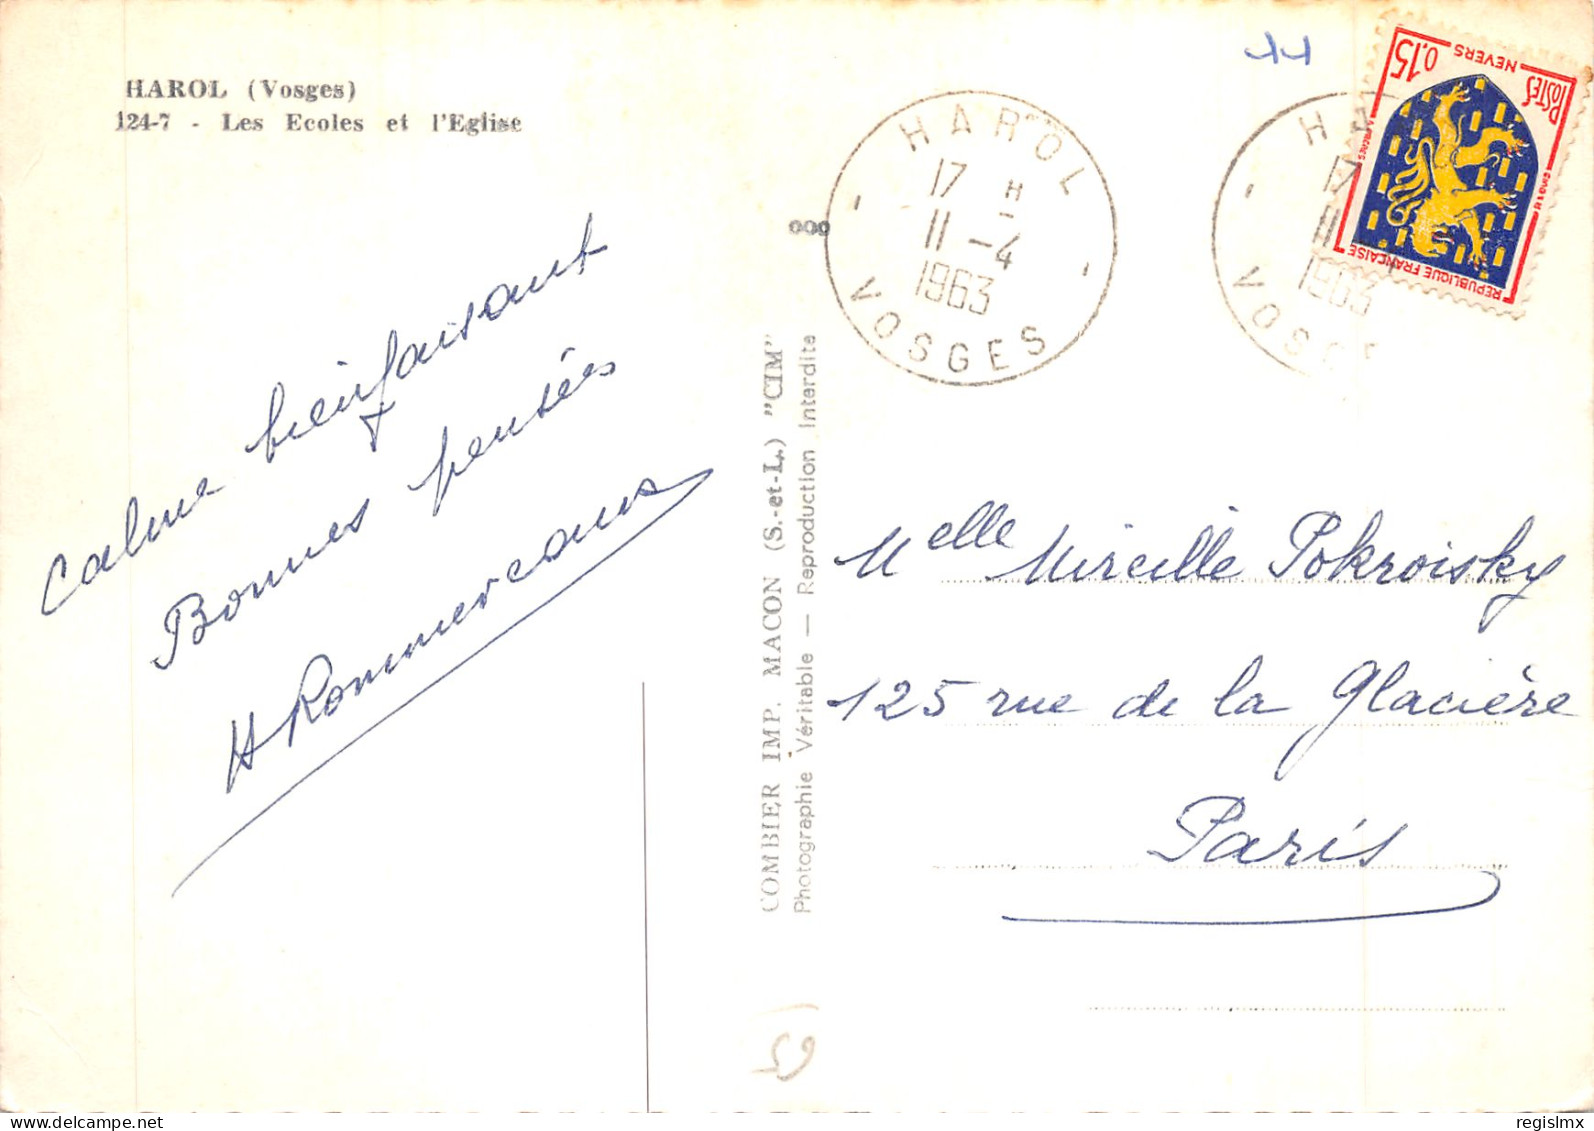 HAROL (Vosges)
124-7 - Les Ecoles et l'Eglise
calme bienfaisant
Bonnes pensées
COMBIER IMP. MACON (S.-et-L.) "CIM"
Photographie Véritable — Reproduction Interdite
HAROL
17 H
11 - 4
1963
VOSGES
HA
17
11
1963
VOSGE
0,15
NEVERS
POSTES
REPUBLIQUE FRANÇAISE
Melle Mireille Pokroisky
125 rue de la Glacière
Paris
delcampe.net
regislmx